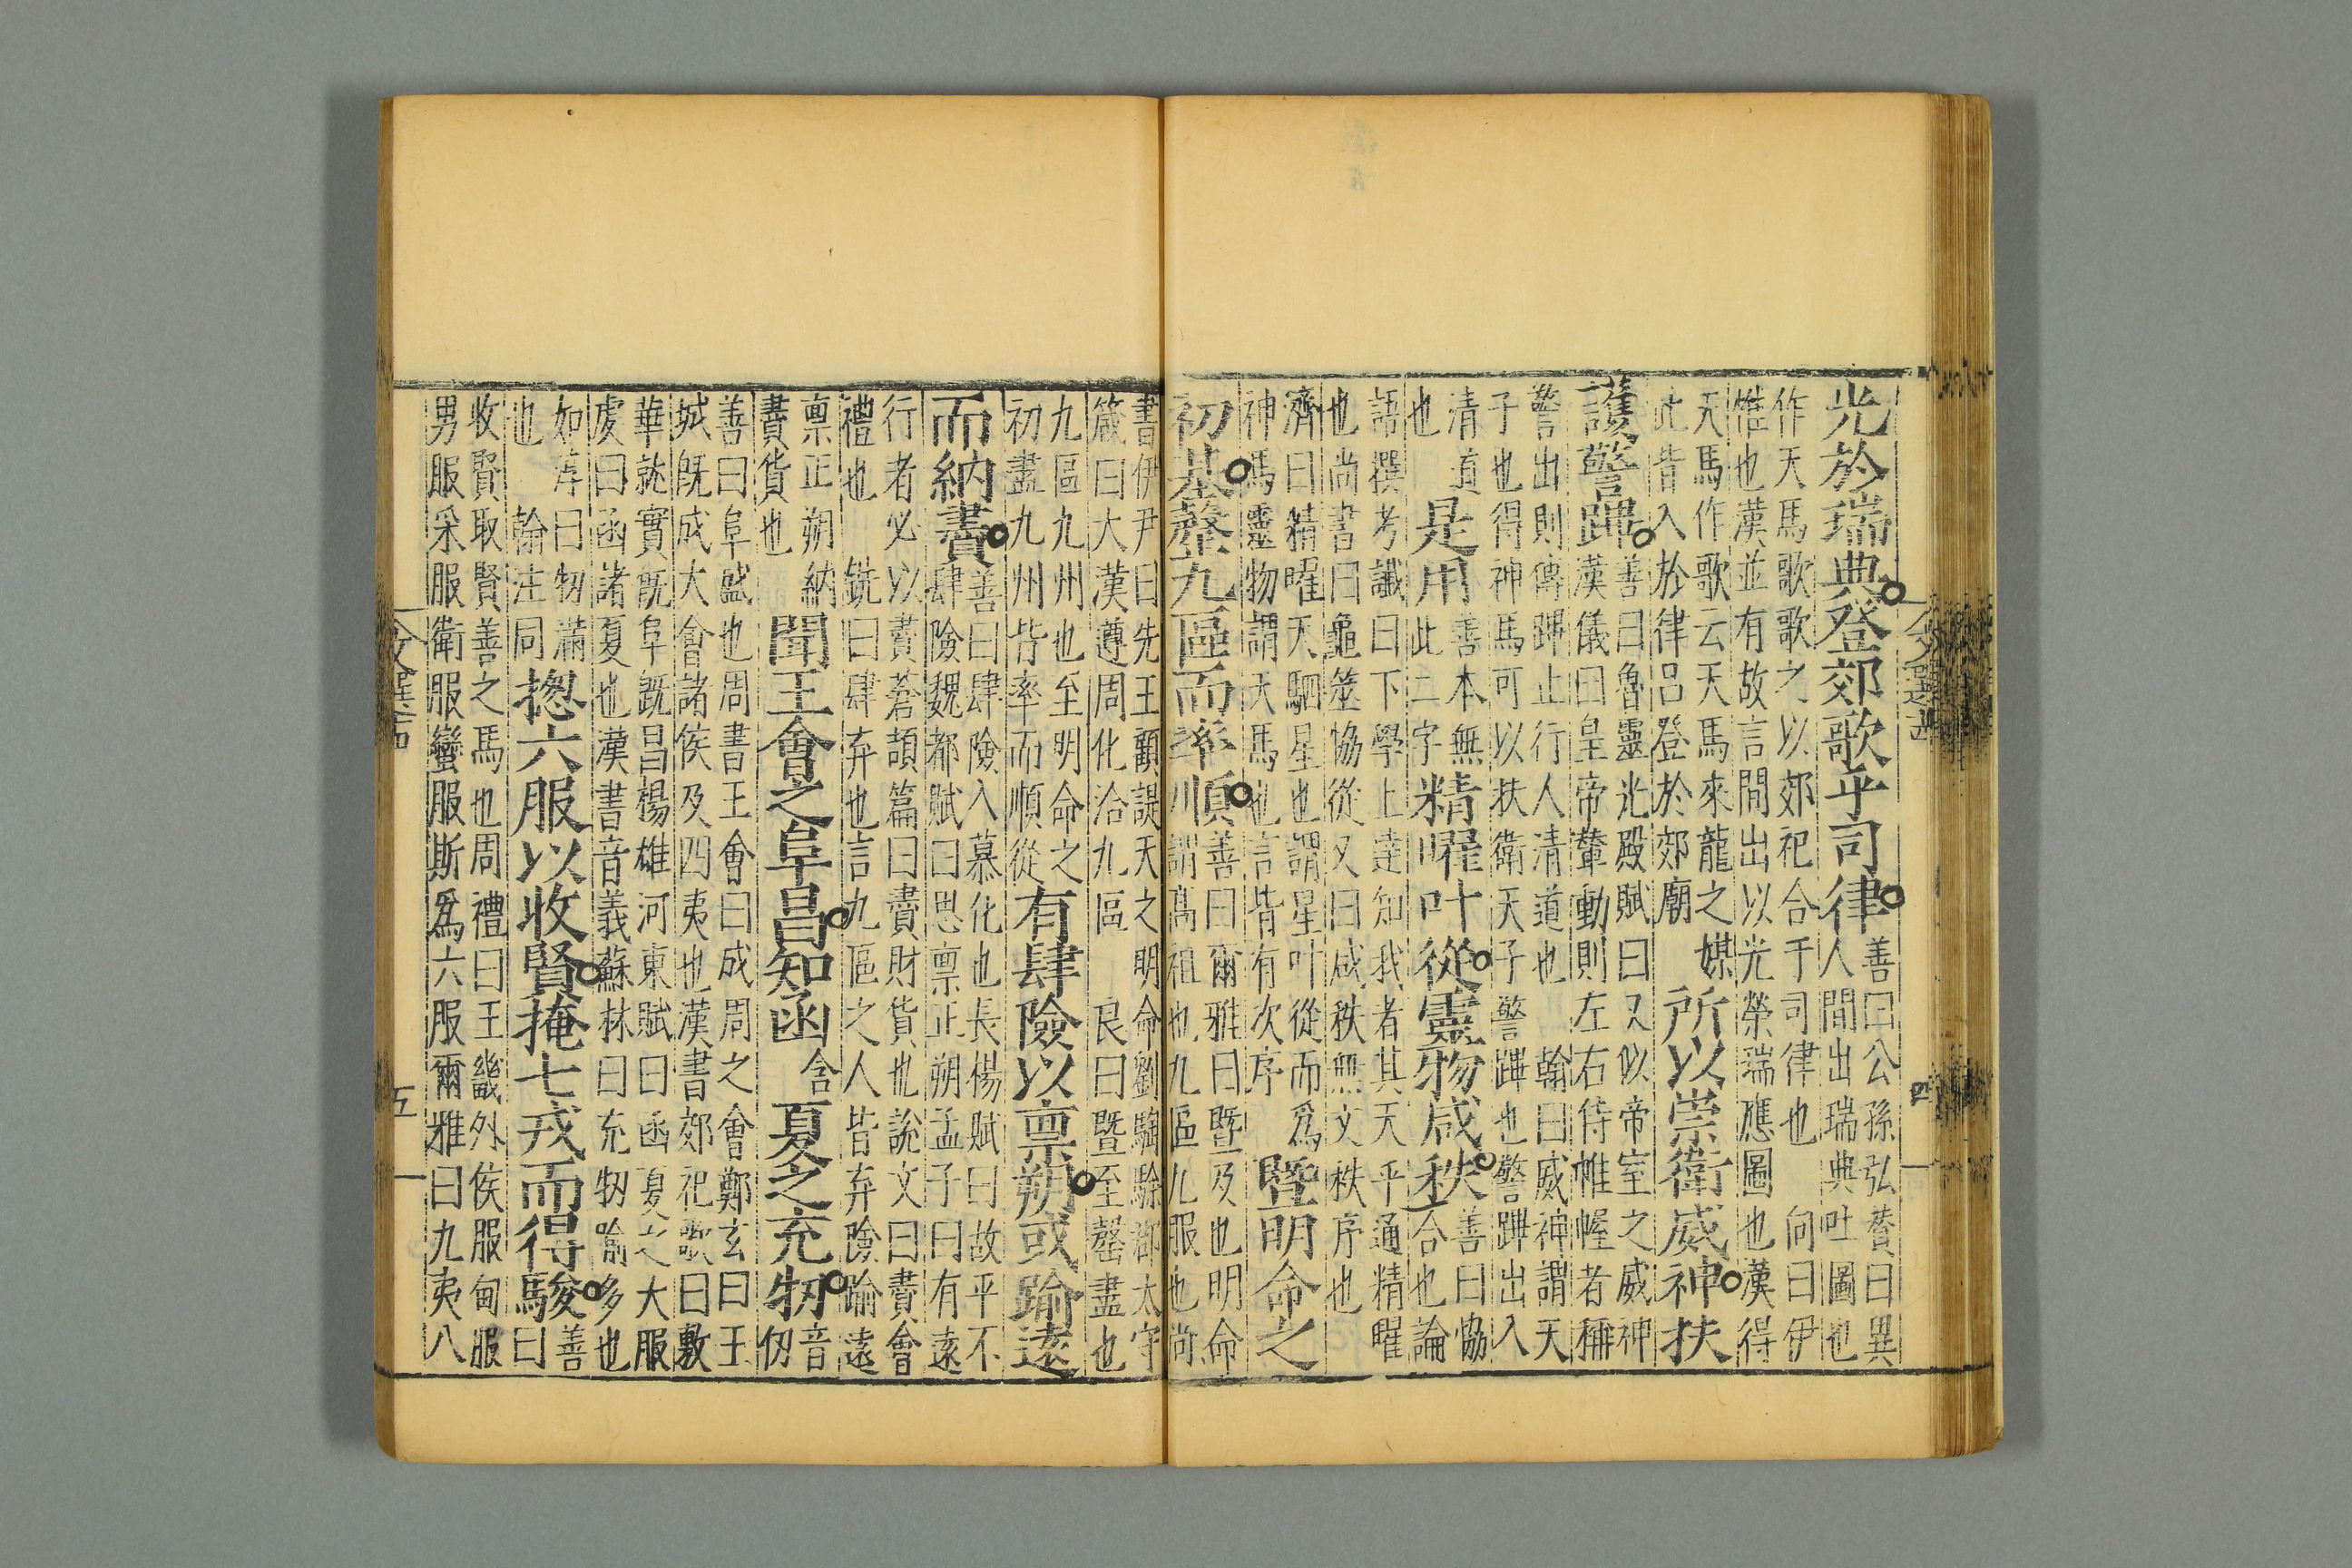 光於瑞典登郊歌乎司律善曰公孫弘贊曰異
人間出瑞典吐圖也
作天馬歌歌之以郊祀合于司律也 向曰伊
惟也漢並有故言間出以光榮瑞應圖也漢得
天馬作歌云天馬來龍之媒
此皆入於律呂登於郊廟所以崇衛威神扶
護警蹕善曰魯靈光殿賦曰又似帝室之威神
漢儀曰皇帝輦動則左右侍帷幄者稱
警出則傳蹕止行人清道也 翰曰威神謂天
子也得神馬可以扶衛天子警蹕也警蹕出入
清道
也是用善本無
此二字精曜叶從靈物咸秩善曰恊
合也論
語撰考讖曰下學上達知我者其天平通精曜
也尚書曰龜筮協從又曰咸秩無文秩序也
濟曰精曜天駟星也謂星叶從而爲
神馬靈物謂天馬也言皆有次序暨明命之
初基罄九區而率順善曰爾雅曰暨及也明命
謂高祖也九區九服也尚
書伊尹曰先王顧諟天之明命劉騊駼郡太守
箴曰大漢遵周化洽九區 良曰暨至罄盡也
九區九州也至明命之
初盡九州皆率而順從有肆險以禀朔或踰遠
而納賮善曰肆險入慕化也長楊賦曰故平不
肆險魏都賦曰思禀正朔孟子曰有遠
行者必以賮蒼頡篇曰賮財貨也說文曰賮會
禮也 銑曰肆弃也言九區之人皆弃險踰遠
禀正朔納
賮貨也聞王會之阜昌知函含夏之充牣音
仞
善曰阜盛也周書王會曰成周之會鄭玄曰王
城旣成大會諸侯及四夷也漢書郊祀歌曰敷
華就實旣阜旣昌楊雄河東賦曰函夏之大服
虔曰函諸夏也漢書音義蘇林曰充牣喻多也
如淳曰牣滿
也 翰注同揔六服以收賢掩七戎而得駿善
曰
收賢取賢善之馬也周禮曰王畿外侯服甸服
男服采服衛服蠻服斯爲六服爾雅曰九夷八